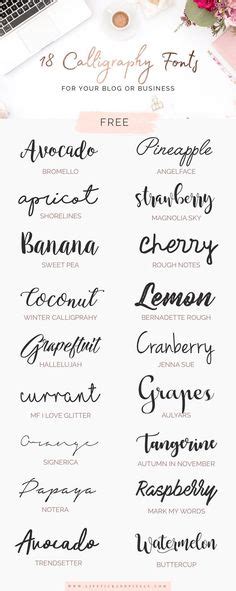 18 Calligraphy Fonts
FOR YOUR BLOG OR BUSINESS
FREE
Avocado
BROMELLO
Pineapple
ANGELFACE
apricot
SHORELINES
strawberry
MAGNOLIA SKY
Banana
SWEET PEA
cherry
ROUGH NOTES
Coconut
WINTER CALLIGRPAHY
Lemon
BERNADETTE ROUGH
Grapefruit
HALLELUJAH
Cranberry
JENNA SUE
currant
MF I LOVE GLITTER
Grapes
AULYARS
Orange
SIGNERICA
Tangerine
AUTUMN IN NOVEMBER
Papaya
NOTERA
Raspberry
MARK MY WORDS
Avocado
TRENDSETTER
Watermelon
BUTTERCUP